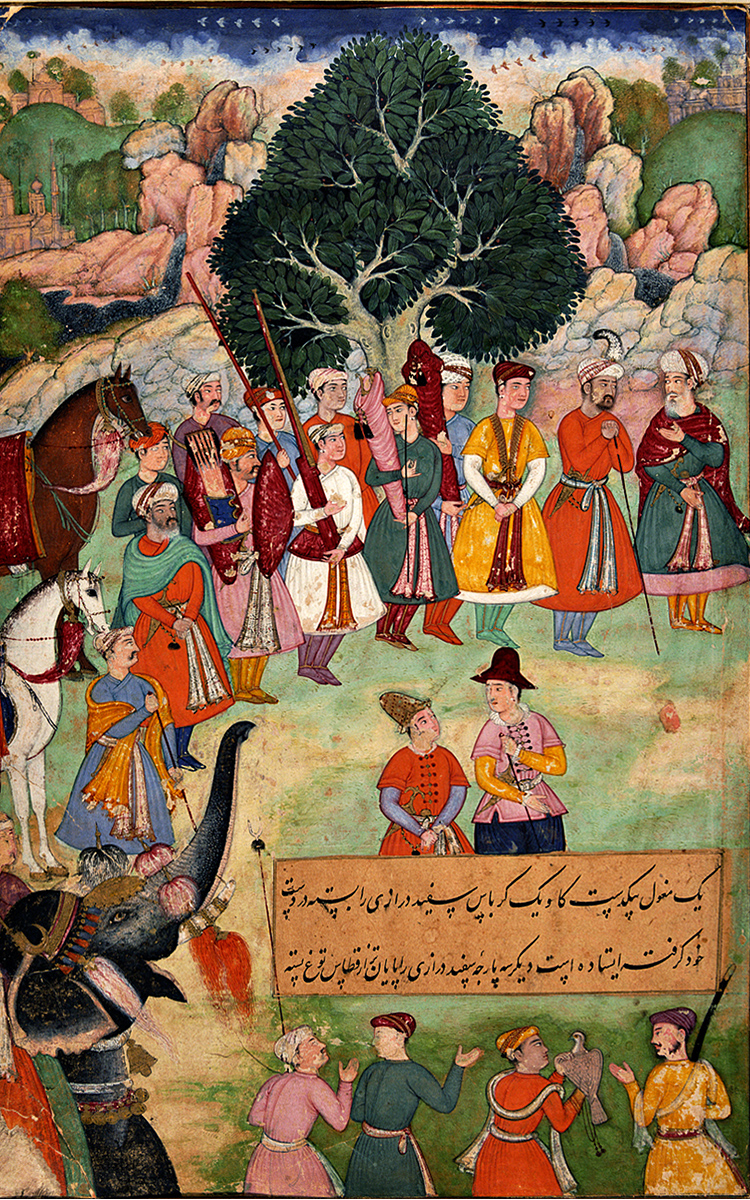 یک مغول بیکدست کاو یک کرباس سفید درازی را بسته در دست
خود گرفته ایستاده است دیگر سه پارچهٔ سفید درازی را پایان تر از قطاس توغ بسته